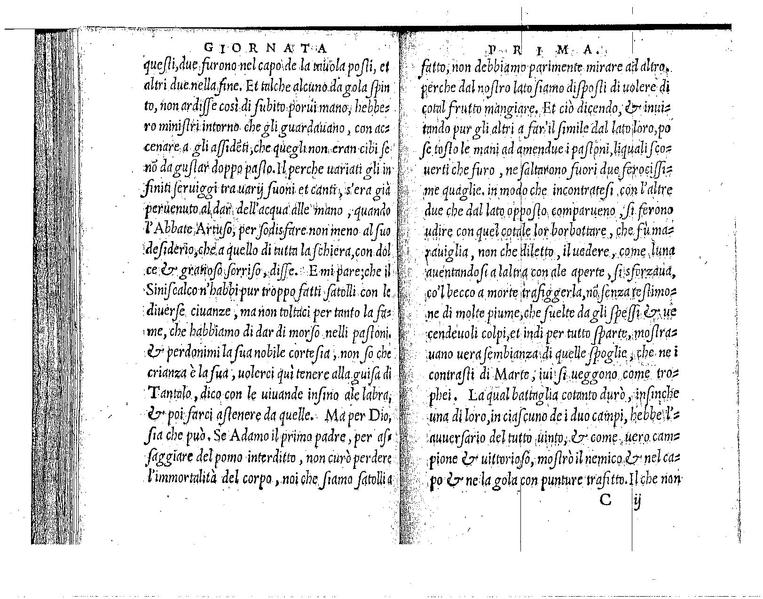 GIORNATA
questi, due furono nel capo de la tauola posti, et
altri due nella fine. Et talche alcuno da gola spin
to, non ardisse così di subito porui mano, hebbe-
ro ministri intorno che gli guardauano, con ac-
cenare a gli assideti, che quegli non eran cibi se
nõ da gustar doppo pasto. Il perche uariati gli in
finiti seruiggi tra uarij suoni et canti, s'era già
peruenuto al dar dell'acqua alle mano, quando
l'Abbate Artuso, per sodisfare non meno al suo
desiderio, che a quello di tutta la schiera, con dol
ce & gratioso sorriso, disse. E mi pare, che il
Siniscalco n'habbi pur troppo fatti satolli con le
diuerse ciuanze, ma non toltici per tanto la fa-
me, che habbiamo di dar di morso nelli pastoni.
& perdonimi la sua nobile cortesia, non so che
crianza è la sua, uolerci quì tenere alla guisa di
Tantalo, dico con le uiuande insino ale labra,
& poi farci astenere da quelle. Ma per Dio,
sia che può. Se Adamo il primo padre, per as-
saggiare del pomo interditto, non curò perdere
l'immortalità del corpo, noi che siamo satolli a
PRIMA.
fatto, non debbiamo parimente mirare ad altro,
perche dal nostro lato siamo disposti di uolere di
cotal frutto mangiare. Et ciò dicendo, & inui-
tando pur gli altri a far'il simile dal lato loro, po
se tosto le mani ad amendue i pastoni, liquali sco-
uerti che furo, ne saltarono fuori due ferocissi-
me quaglie. in modo che incontratesi con l'altre
due che dal lato opposto comparueno, si ferono
udire con quel cotale lor borbottare, che fù ma-
rauiglia, non che diletto, il uedere, come l'una
auentandosi a l'altra con ale aperte, si sforzaua,
co'l becco a morte trafiggerla, nõ senza testimo-
ne di molte piume, che suelte da gli spessi & ue
cendeuoli colpi, et indi per tutto sparte, mostra-
uano uera sembianza di quelle spoglie, che ne i
contrasti di Marte, iui si ueggono come tro-
phei. La qual battaglia cotanto durò, insinche
una di loro, in ciascuno de i duo campi, hebbe l'-
auuersario del tutto uinto, & come uero cam-
pione & uittorioso, mostrò il nemico & nel ca-
po & ne la gola con punture trafitto. Il che non
C ij